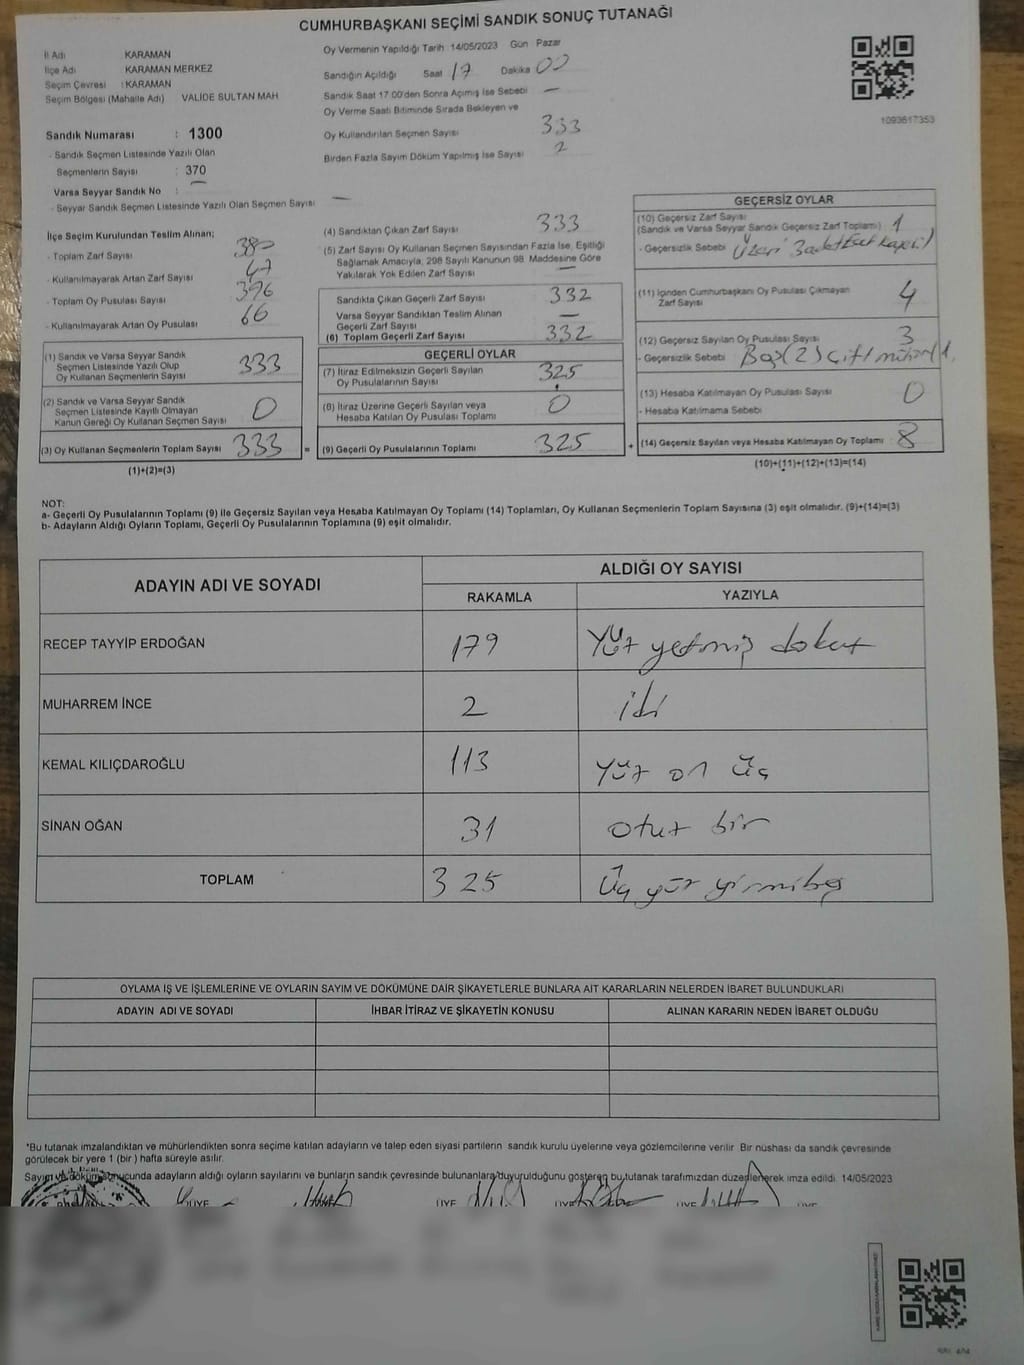 CUMHURBAŞKANI SEÇİMİ SANDIK SONUÇ TUTANAĞI
İl Adı KARAMAN
İlçe Adı KARAMAN MERKEZ
Seçim Çevresi : KARAMAN
Seçim Bölgesi (Mahalle Adı) VALİDE SULTAN MAH
Sandık Numarası : 1300
- Sandık Seçmen Listesinde Yazılı Olan
Seçmenlerin Sayısı : 370
Varsa Seyyar Sandık No : —
- Seyyar Sandık Seçmen Listesinde Yazılı Olan Seçmen Sayısı : —
Oy Vermenin Yapıldığı Tarih 14/05/2023 Gün Pazar
Sandığın Açıldığı Saat 17 Dakika 00
Sandık Saat 17:00'den Sonra Açımış İse Sebebi —
Oy Verme Saati Bitiminde Sırada Bekleyen ve
Oy Kullandırılan Seçmen Sayısı 333
Birden Fazla Sayım Döküm Yapılmış İse Sayısı
1093617353
İlçe Seçim Kurulundan Teslim Alınan;
- Toplam Zarf Sayısı 380
- Kullanılmayarak Artan Zarf Sayısı 47
- Toplam Oy Pusulası Sayısı 396
- Kullanılmayarak Artan Oy Pusulası 66
(1) Sandık ve Varsa Seyyar Sandık
Seçmen Listesinde Yazılı Olup
Oy Kullanan Seçmenlerin Sayısı 333
(2) Sandık ve Varsa Seyyar Sandık
Seçmen Listesinde Kayıtlı Olmayan
Kanun Gereği Oy Kullanan Seçmen Sayısı 0
(3) Oy Kullanan Seçmenlerin Toplam Sayısı 333 =
(1)+(2)=(3)
(4) Sandıktan Çıkan Zarf Sayısı 333
(5) Zarf Sayısı Oy Kullanan Seçmen Sayısından Fazla İse, Eşitliği
Sağlamak Amacıyla, 298 Sayılı Kanunun 98. Maddesine Göre
Yakılarak Yok Edilen Zarf Sayısı —
Sandıkta Çıkan Geçerli Zarf Sayısı 332
Varsa Seyyar Sandıktan Teslim Alınan
Geçerli Zarf Sayısı —
(6) Toplam Geçerli Zarf Sayısı 332
GEÇERLİ OYLAR
(7) İtiraz Edilmeksizin Geçerli Sayılan
Oy Pusulalarının Sayısı 325
(8) İtiraz Üzerine Geçerli Sayılan veya
Hesaba Katılan Oy Pusulası Toplamı 0
(9) Geçerli Oy Pusulalarının Toplamı 325 +
GEÇERSİZ OYLAR
(10) Geçersiz Zarf Sayısı
(Sandık ve Varsa Seyyar Sandık Geçersiz Zarf Toplamı) 1
- Geçersizlik Sebebi Üzeri
(11) İçinden Cumhurbaşkanı Oy Pusulası Çıkmayan
Zarf Sayısı 4
(12) Geçersiz Sayılan Oy Pusulası Sayısı 3
- Geçersizlik Sebebi Boş(2) çift mühür(1)
(13) Hesaba Katılmayan Oy Pusulası Sayısı 0
- Hesaba Katılmama Sebebi
(14) Geçersiz Sayılan veya Hesaba Katılmayan Oy Toplamı 8
(10)+(11)+(12)+(13)=(14)
NOT:
a- Geçerli Oy Pusulalarının Toplamı (9) ile Geçersiz Sayılan veya Hesaba Katılmayan Oy Toplamı (14) Toplamları, Oy Kullanan Seçmenlerin Toplam Sayısına (3) eşit olmalıdır. (9)+(14)=(3)
b- Adayların Aldığı Oyların Toplamı, Geçerli Oy Pusulalarının Toplamına (9) eşit olmalıdır.
ADAYIN ADI VE SOYADI ALDIĞI OY SAYISI
RAKAMLA YAZIYLA
RECEP TAYYİP ERDOĞAN 179 Yüz yetmiş dokuz
MUHARREM İNCE 2 iki
KEMAL KILIÇDAROĞLU 113 Yüz on üç
SİNAN OĞAN 31 otuz bir
TOPLAM 325 Üç yüz yirmibeş
OYLAMA İŞ VE İŞLEMLERİNE VE OYLARIN SAYIM VE DÖKÜMÜNE DAİR ŞİKAYETLERLE BUNLARA AİT KARARLARIN NELERDEN İBARET BULUNDUKLARI
ADAYIN ADI VE SOYADI İHBAR İTİRAZ VE ŞİKAYETİN KONUSU ALINAN KARARIN NEDEN İBARET OLDUĞU
*Bu tutanak imzalandıktan ve mühürlendikten sonra seçime katılan adayların ve talep eden siyasi partilerin sandık kurulu üyelerine veya gözlemcilerine verilir. Bir nüshası da sandık çevresinde
görülecek bir yere 1 (bir ) hafta süreyle asılır.
Sayım ve döküm sonucunda adayların aldığı oyların sayılarını ve bunların sandık çevresinde bulunanlara duyurulduğunu gösteren bu tutanak tarafımızdan düzenlenerek imza edildi. 14/05/2023
ÜYE ÜYE ÜYE ÜYE ÜYE